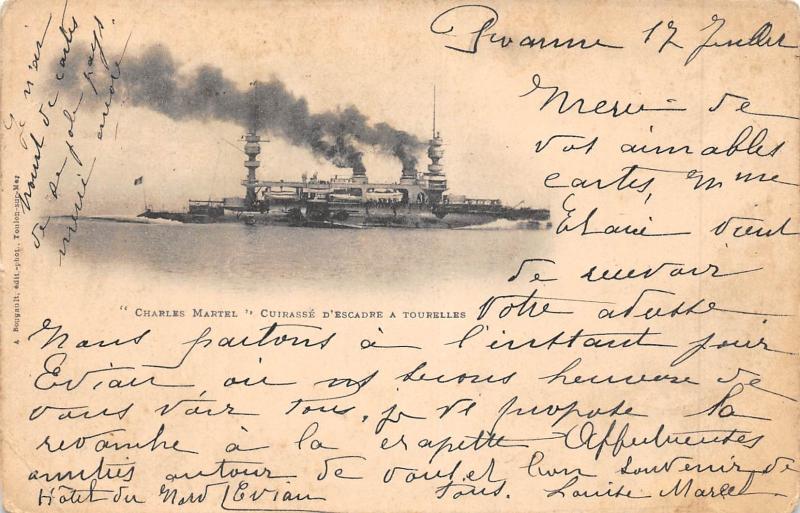 Pivanne 17 Juillet
Merci de
vos aimables
cartes, Mme
vient
de recevoir
votre adresse
Nous partons à l'instant pour
Evian, où ns serons heureuse de
vous voir tous, je vs propose la
revanche à la crapette Affectueuses
amitiés autour de vous et bon souvenir de
tous. Louise Marcel
Hôtel du Nord Evian
Je n'ai
point de cartes
de ce joli pays
encore
"CHARLES MARTEL" CUIRASSÉ D'ESCADRE A TOURELLES
A. Bougault, édit.-phot., Toulon-sur-Mer